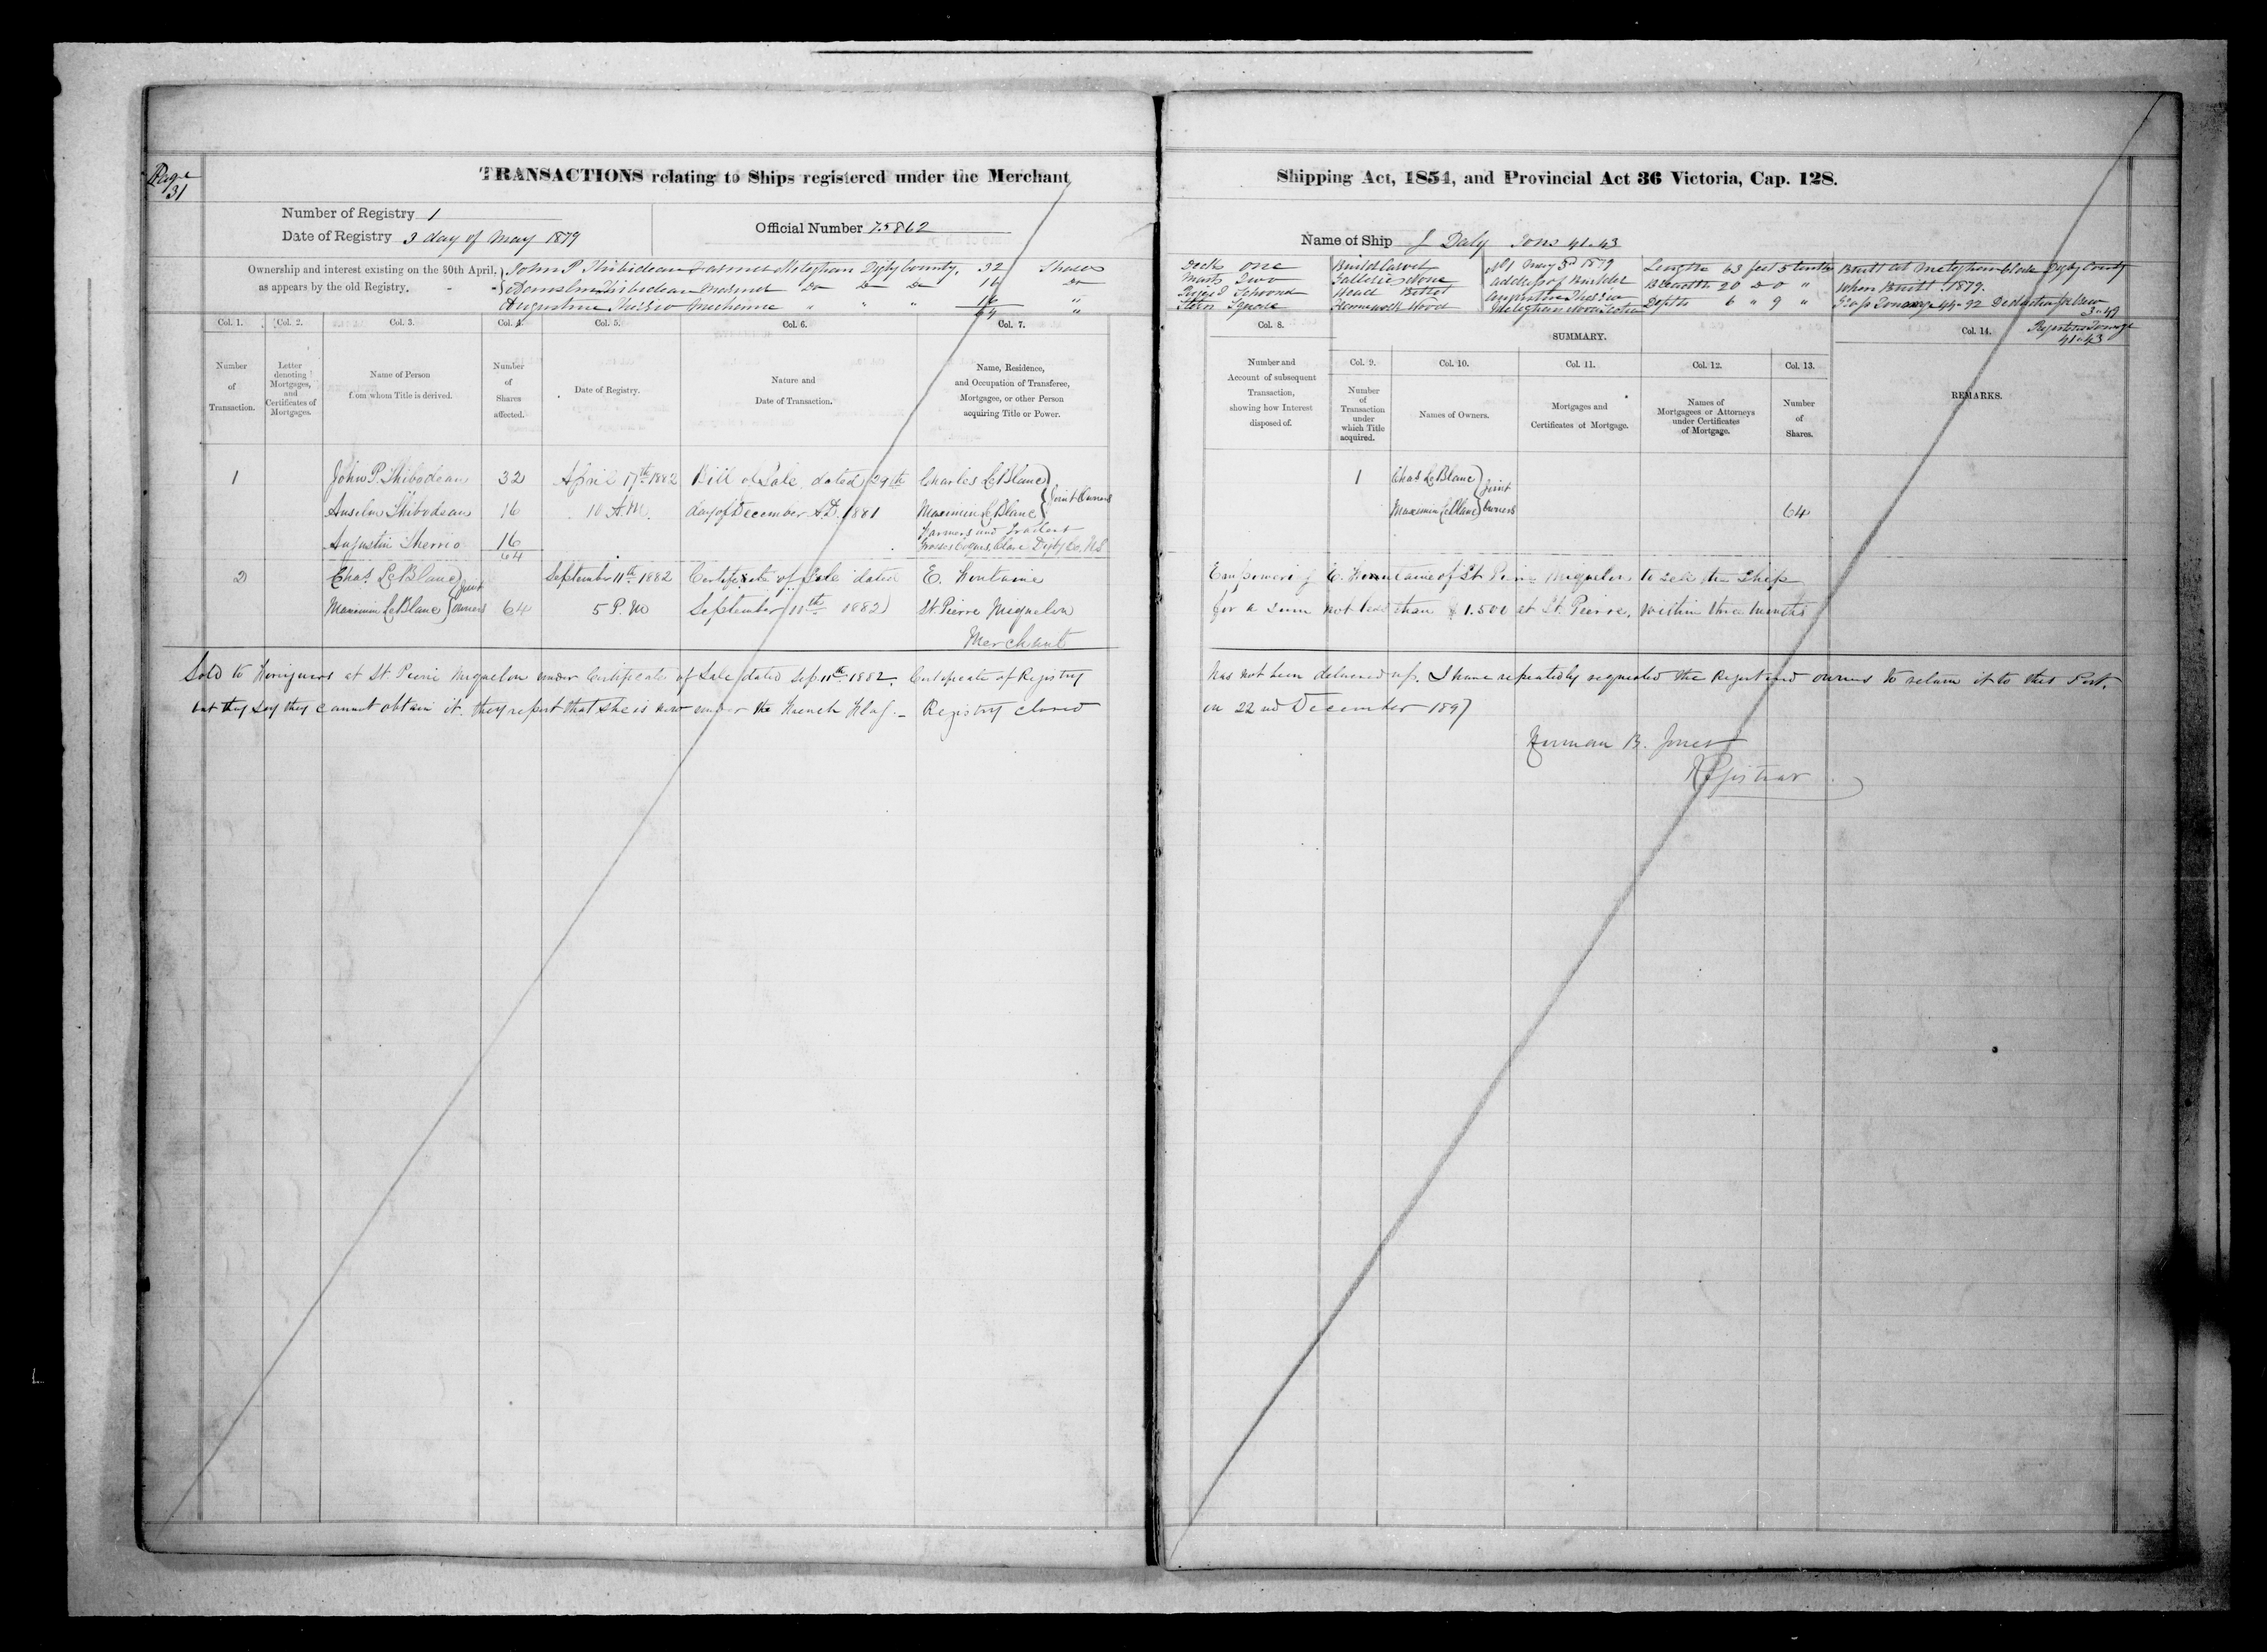 Page
31
TRANSACTIONS relating to Ships registered under the Merchant
Number of Registry 1
Date of Registry 3 day of May 1879
Official Number 75862
Ownership and interest existing on the 30th April,
as appears by the old Registry.
John P Thibideau Farmer Meteghan Digby County. 32 Shares
Thibideau Mariner Do Do Do 16 Do
Augustine Mechanic " " " 16 "
64 "
Col. 1. Col. 2. Col. 3. Col. 4. Col. 5. Col. 6. Col. 7.
Number of Transaction.
Letter denoting Mortgages, and Certificates of Mortgages.
Name of Person from whom Title is derived.
Number of Shares affected.
Date of Registry.
Nature and Date of Transaction.
Name, Residence, and Occupation of Transferee, Mortgagee, or other Person acquiring Title or Power.
1 John P. Thibodeau 32 April 17th 1882 Bill of Sale dated 29th Charles LeBlanc
Anselm Thibodeau 16 10 A.M. day of December A.D. 1881 Maximin LeBlanc } Joint Owners
Augustin Therrio 16 Farmers and Traders
64 Grosses Coques, Clare Digby Co. N.S.
2 Chas. LeBlanc September 11th 1882 Certificate of Sale dated E. Fontaine
Maximin LeBlanc } Joint Owners 64 5 P.M September 11th 1882 St Pierre Miquelon
Merchant
Sold to Foreigners at St. Pierre Miquelon under Certificate of Sale dated Sep. 11th 1882. Certificate of Registry
but they say they cannot obtain it. they report that she is now under the French Flag. – Registry closed
Shipping Act, 1854, and Provincial Act 36 Victoria, Cap. 128.
Name of Ship J Daly Tons 41.43
Decks One
Masts Two
Rigged Schooner
Stern Square
Build Carvel
Galleries None
Head Billet
Framework Wood
No 1 May 3d 1879
address of Builder
Meteghan Nova Scotia
Length 63 feet 5 tenths
Breadth 20 Do 0 "
Depth 6 " 9 "
Built at Meteghan Clare Digby County
When Built 1879.
Gross Tonnage 44.92
3.49
Registered Tonnage
41.43
Col. 8. SUMMARY. Col. 14.
Col. 9. Col. 10. Col. 11. Col. 12. Col. 13.
Number and Account of subsequent Transaction, showing how Interest disposed of.
Number of Transaction under which Title acquired.
Names of Owners.
Mortgages and Certificates of Mortgage.
Names of Mortgagees or Attorneys under Certificates of Mortgage.
Number of Shares.
REMARKS.
1 Chas LeBlanc
Maximin LeBlanc } Joint Owners 64
Empowering E. Fontaine of St Pierre Miquelon to sell the Ship
for a sum not less than $1.500 at St. Pierre, within three months
has not been delivered up. I have repeatedly requested the Registered owners to return it to this Port.
on 22nd December 1897
Herman B. Jones
Registrar